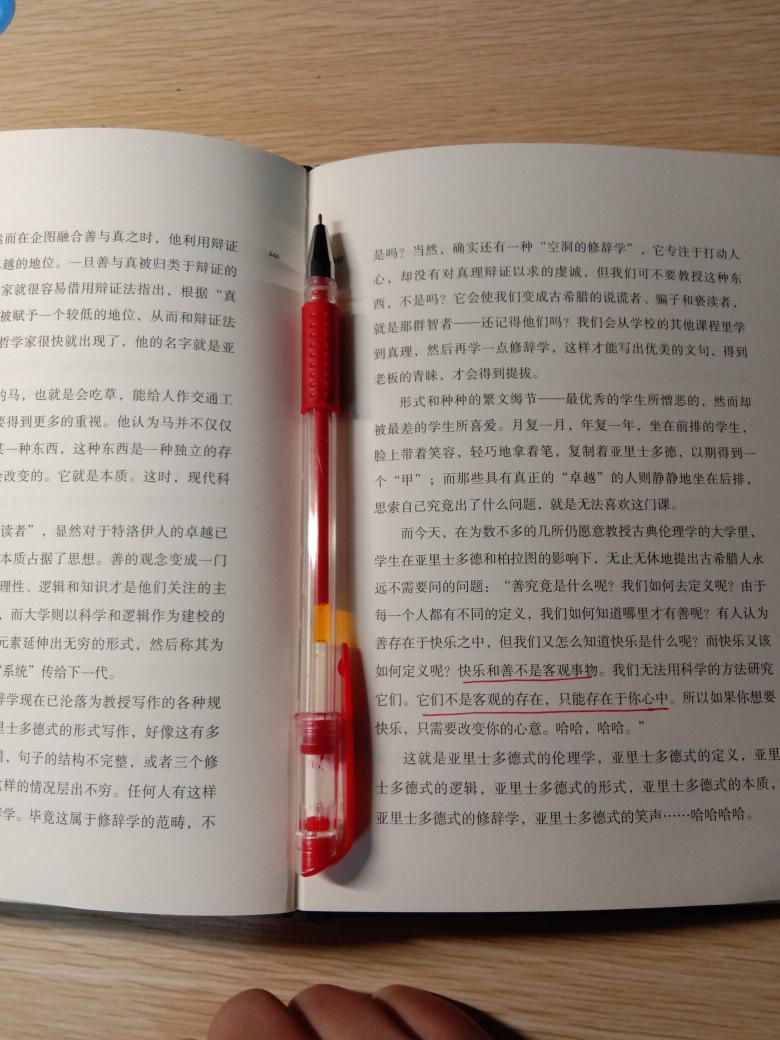 然而在企图融合善与真之时，他利用辩证
越的地位。一旦善与真被归类于辩证的
家就很容易借用辩证法指出，根据“真
被赋予一个较低的地位，从而和辩证法
哲学家很快就出现了，他的名字就是亚
的马，也就是会吃草，能给人作交通工
要得到更多的重视。他认为马并不仅仅
某一种东西，这种东西是一种独立的存
会改变的。它就是本质。这时，现代科
读者”，显然对于特洛伊人的卓越已
本质占据了思想。善的观念变成一门
理性、逻辑和知识才是他们关注的主
，而大学则以科学和逻辑作为建校的
元素延伸出无穷的形式，然后称其为
“系统”传给下一代。
辞学现在已沦落为教授写作的各种规
里士多德式的形式写作，好像这有多
错，句子的结构不完整，或者三个修
这样的情况层出不穷。任何人有这样
辞学。毕竟这属于修辞学的范畴，不
446
是吗？当然，确实还有一种“空洞的修辞学”，它专注于打动人
心，却没有对真理辩证以求的虔诚，但我们可不要教授这种东
西，不是吗？它会使我们变成古希腊的说谎者、骗子和亵渎者，
就是那群智者——还记得他们吗？我们会从学校的其他课程里学
到真理，然后再学一点修辞学，这样才能写出优美的文句，得到
老板的青睐，才会得到提拔。
形式和种种的繁文缛节——最优秀的学生所憎恶的，然而却
被最差的学生所喜爱。月复一月，年复一年，坐在前排的学生，
脸上带着笑容，轻巧地拿着笔，复制着亚里士多德，以期得到一
个“甲”；而那些具有真正的“卓越”的人则静静地坐在后排，
思索自己究竟出了什么问题，就是无法喜欢这门课。
而今天，在为数不多的几所仍愿意教授古典伦理学的大学里，
学生在亚里士多德和柏拉图的影响下，无止无休地提出古希腊人永
远不需要问的问题：“善究竟是什么呢？我们如何去定义呢？由于
每一个人都有不同的定义，我们如何知道哪里才有善呢？有人认为
善存在于快乐之中，但我们又怎么知道快乐是什么呢？而快乐又该
如何定义呢？快乐和善不是客观事物。我们无法用科学的方法研究
它们。它们不是客观的存在，只能存在于你心中。所以如果你想要
快乐，只需要改变你的心意。哈哈，哈哈。”
这就是亚里士多德式的伦理学，亚里士多德式的定义，亚里
士多德式的逻辑，亚里士多德式的形式，亚里士多德式的本质，
亚里士多德式的修辞学，亚里士多德式的笑声……哈哈哈哈。